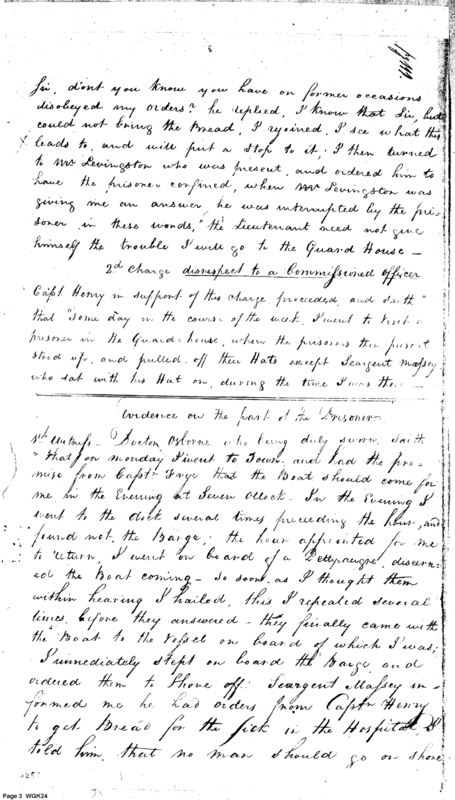 5
Sir, didnt you know you have on former occasions
disobeyed my orders? he replied, I know that Sir, but
could not bring the Bread, I rejoined, I see what this
leads to, and will put a stop to it; I then turned
to Mr Levingston who was present, and ordered him to
have the prisoner confined, when Mr Levingston was
giving me an answer he was interrupted by the pri-
soner in these words, "the Lieutenant need not give
himself the trouble I will go to the Guard House —
2d Charge disrespect to a Commissioned Officer
Capt Henry in support of this charge, proceeded, and saith "
that "Some day in the course of the week, I went to visit a
prisoner in the Guard-house, when the prisoners then present
stood up, and pulled off their Hats except Seargent Massey
who sat with his Hat on, during the time I was there —
Evidence on the part of the Prisoner
1st Witness — Doctor Osborne who being duly sworn, saith
"that on monday I went to Town, and had the pro-
mise from Captn Frye that the Boat should come for
me in the Evening at Seven OClock. In the Evening I
went to the dock several times preceding the hour, and
found not, the Barge; the hour appointed for me
to return, I went on board of a Pettyaugre, discern-
ed the Boat coming — So soon as I thought them
within hearing I hailed, this I repeated several
times, before they answered — they finally came with
the Boat to the Vessel on board of which I was;
I immediately stept on board the Barge, and
ordered them to shove off: Seargent Massey in-
formed me he had orders from Captn Henry
to get Bread for the sick in the Hospital, I
told him, that no man should go on shore
Page 3 WGK24